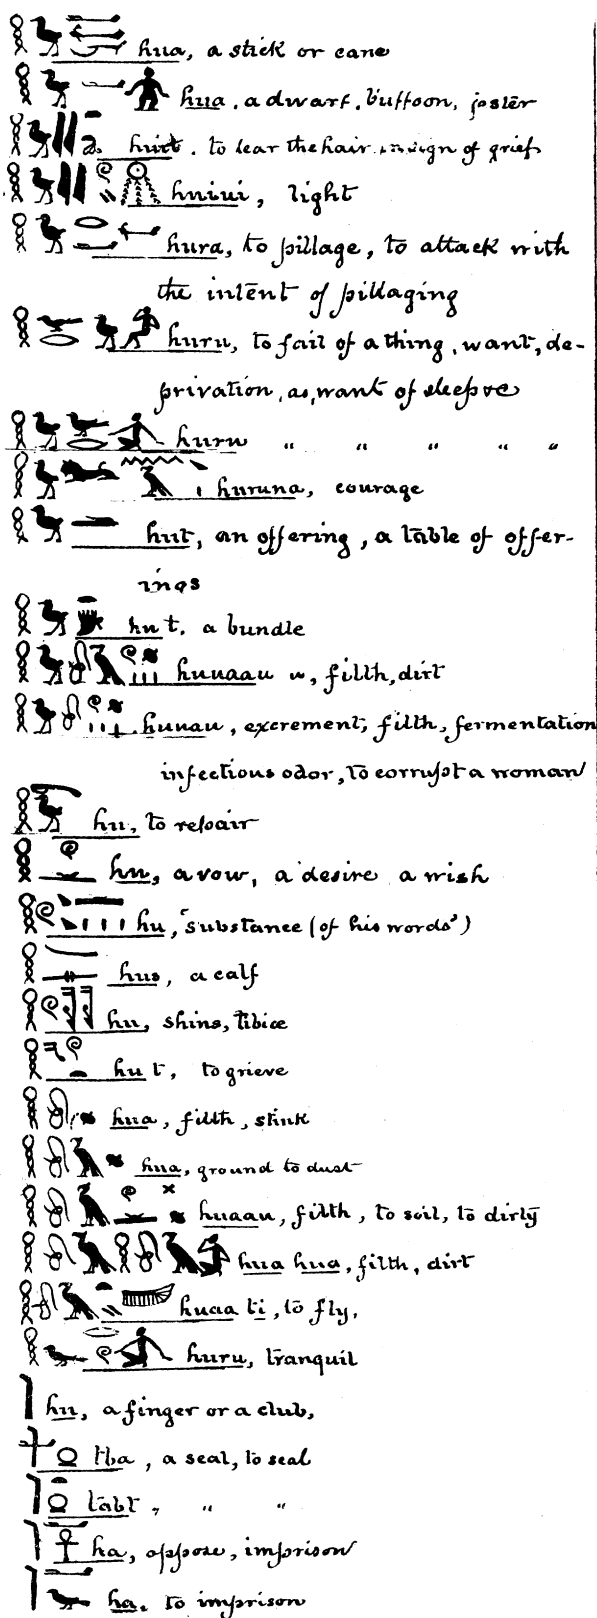 hua, a stick or cane
hua, a dwarf, buffoon, jester
to tear the hair in sign of grief
huiui, light
hura, to pillage, to attack with
the intent of pillaging
huru, to fail of a thing, want, de-
privation, as, want of sleep
huru " " " " "
huruna, courage
hut, an offering, a table of offer-
ings
hut, a bundle
huuaau, filth, dirt
huuau, excrement, filth, fermentation
infectious odor, to corrupt a woman
hu, to repair
hu, a vow, a desire a wish
hu, "substance (of his words")
hus, a calf
hu, shins, tibiæ
hu t, to grieve
hua, filth, stink
hua, ground to dust
huaau, filth, to soil, to dirty
hua hua, filth, dirt
huaa ti, to fly,
huru, tranquil
hu, a finger or a club,
tba, a seal, to seal
tabt " " "
ha, oppose, imprison
ha, to imprison